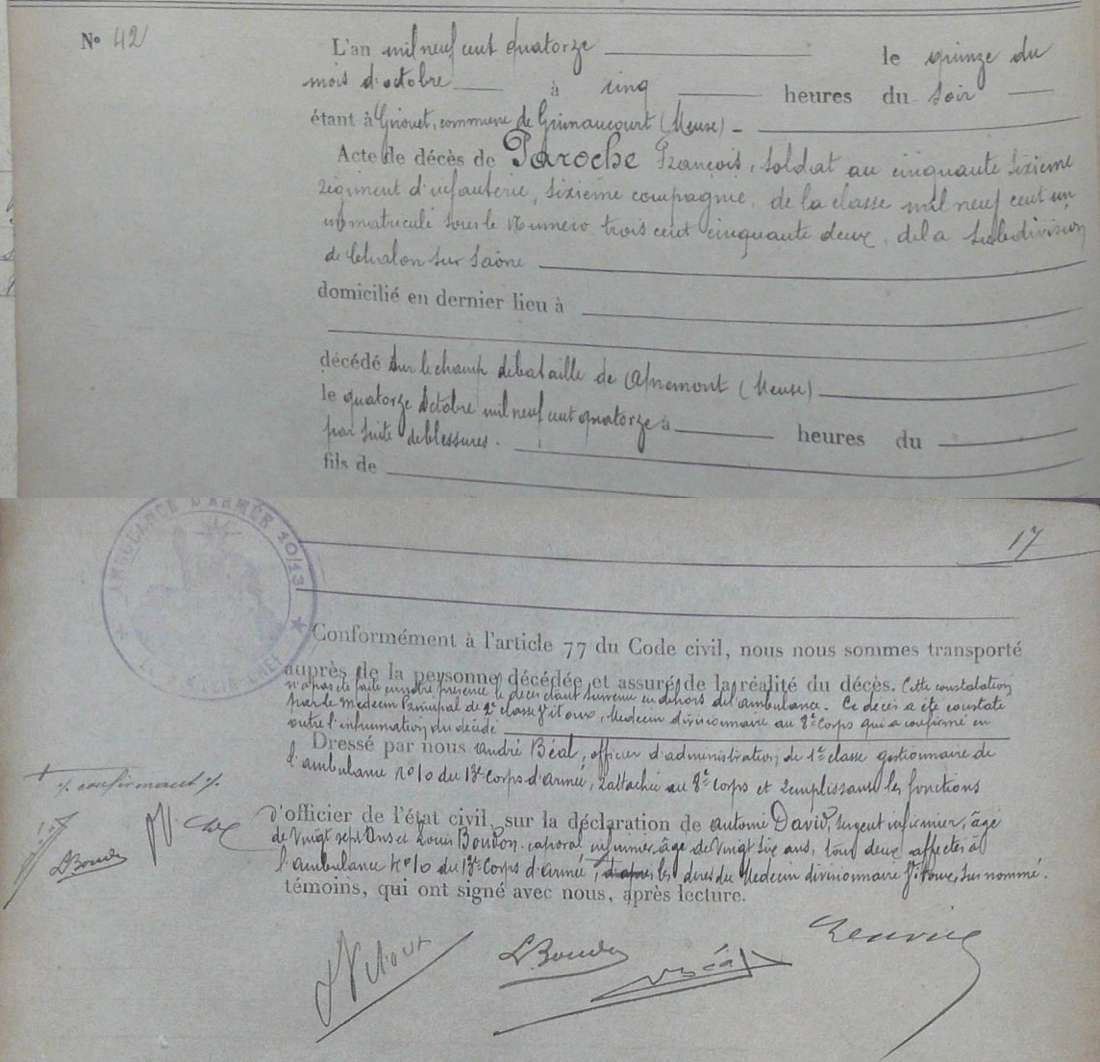 N° 42
L'an mil neuf cent quatorze le quinze du
mois d'octobre à cinq heures du soir
étant à Griouet, commune de Grimaucourt (Meuse)
Acte de décès de Paroche François, soldat au cinquante sixième
régiment d'infanterie, sixième compagnie, de la classe mil neuf cent un
immatriculé sous le numéro trois cent cinquante deux, de la subdivision
de Chalon sur Saône
domicilié en dernier lieu à
décédé sur le champ de bataille de Apremont (Meuse)
le quatorze octobre mil neuf cent quatorze à heures du
par suite de blessures.
fils de
AMBULANCE D'ARMÉE 10/13
17
Conformément à l'article 77 du Code civil, nous nous sommes transporté
auprès de la personne décédée et assuré de la réalité du décès. Cette constatation
n'a pas été faite en notre présence le décès étant survenu en dehors de l'ambulance. Ce décès a été constaté
par le Médecin Principal de 2e classe Vitoux, Médecin divisionnaire au 8e Corps qui a confirmé en
outre l'inhumation du décédé
Dressé par nous André Béal, officier d'administration de 1e classe gestionnaire de
l'ambulance N°10 du 13e Corps d'Armée, rattachée au 8e Corps et remplissant les fonctions
./. confirmant ./.
d'officier de l'état civil, sur la déclaration de Antoine David, sergent infirmier, âgé
de vingt sept ans et Louis Boudon caporal infirmier âgé de vingt six ans, tous deux affectés à
l'ambulance N°10 du 13e Corps d'Armée, d'après les dires du Médecin divisionnaire Vitoux, sus nommé.
témoins, qui ont signé avec nous, après lecture.
LBoudon
Béal